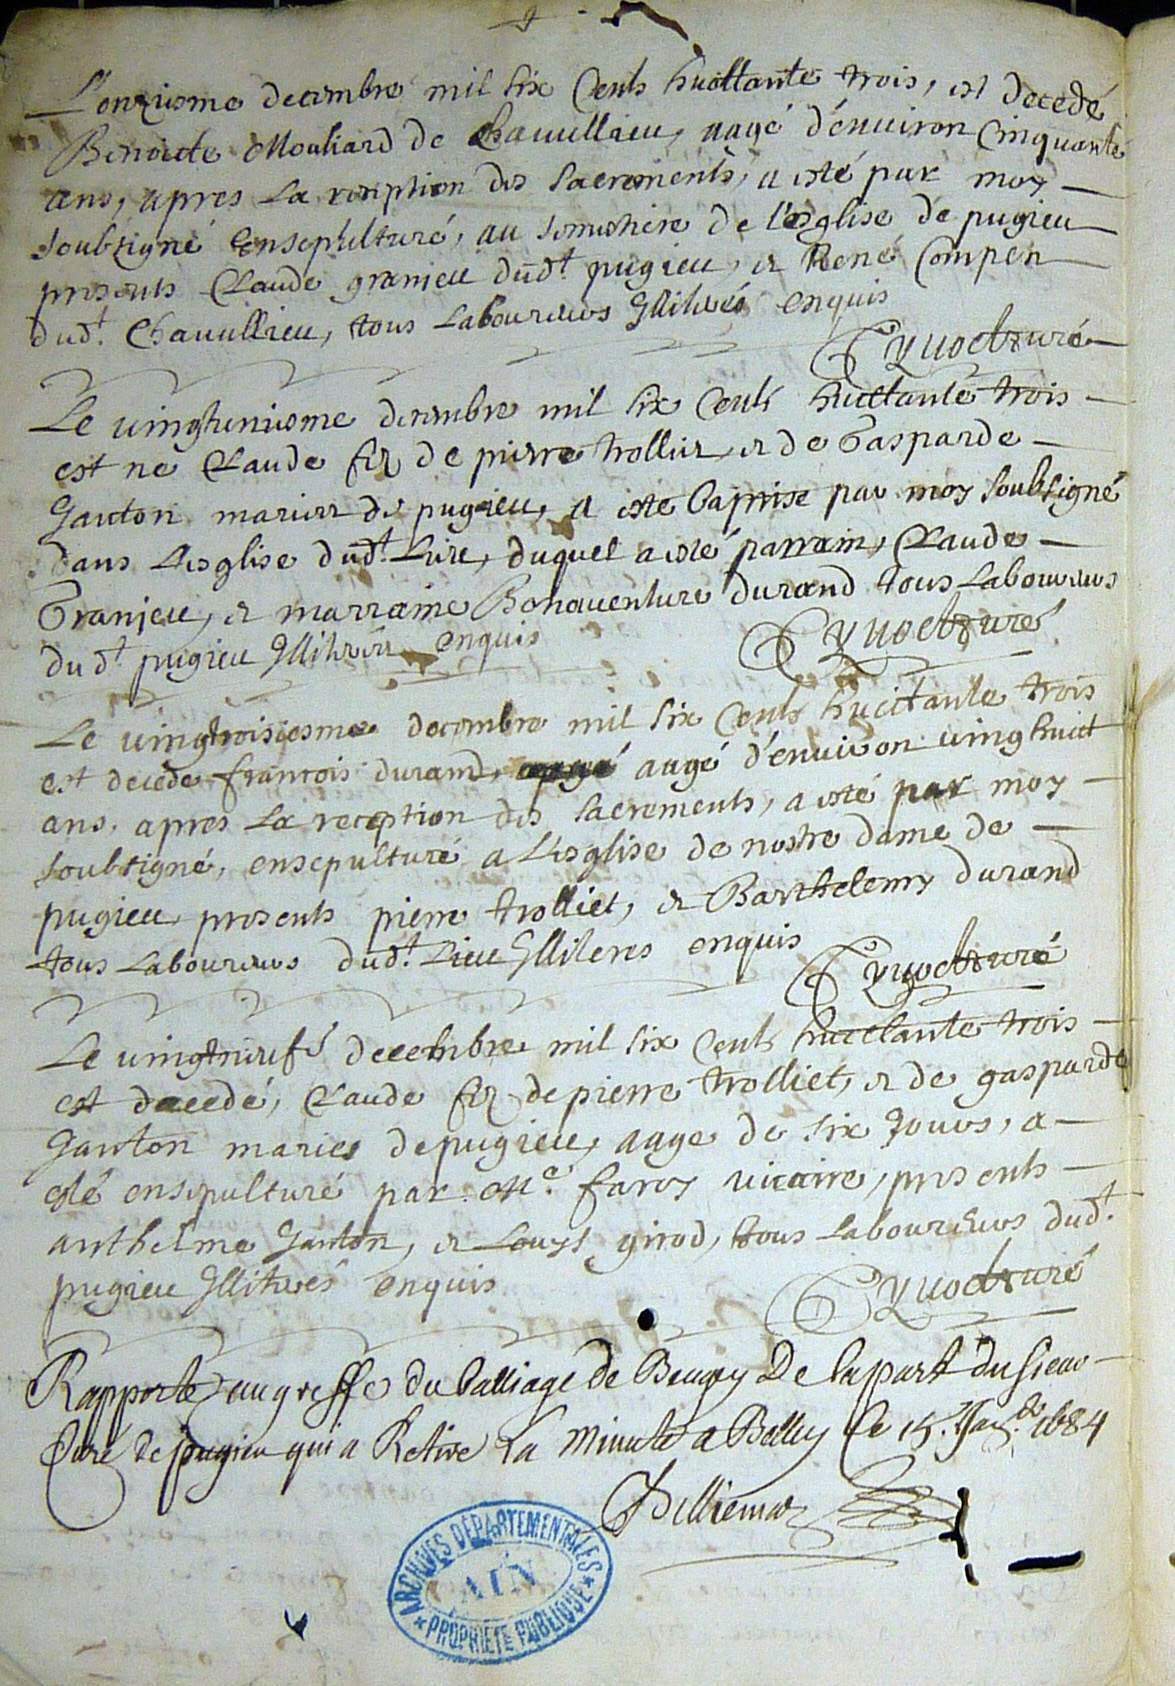 L'onziesme decembre mil six Cents huottante trois, est decedé
Benoicte Mouliard de Chavillieu, aagé d'environ Cinquante
ans, apres La reception des Sacrements, a esté par moy
Soubsigné Ensepulturé, au Semestiere de l'esglise de pugieu
presents Claude granjeu dudt pugieu, et René Compen
dudt. Chavillieu, tous Laboureurs Illiterés enquis
Cyvoct curé
Le vingtuniesme decembre mil six Cents huictante trois
est né Claude filz de pierre trolliet, et de Gasparde
Janton mariez de pugieu, a esté baptise par moy Soubsigné
dans L'esglise dudt. Lieu, duquel a esté parrain, Claude
Granjeu, et marraine Bonaventure durand tous Laboureurs
du dt. pugieu Illiterez enquis
Cyvoct curé
Le vingtroisiesme decembre mil six Cents huictante trois
est decedé francois durand, aagé d'environ vingt huict
ans, apres La reception des Sacrements, a esté par moy
Soubsigné, ensepulturé a L'esglise de nostre dame de
pugieu presents pierre trolliet, et Barthelemy durand
tous Laboureurs dudt. Lieu Illiteres enquis
Cyvoct curé
Le vingtneufe decembre mil six Cents huictante trois
est decedé, Claude filz de pierre trolliet, et de gasparde
Janton maries de pugieu, aage de six Jours, a
esté ensepulturé par Me. faroy vicaire, presents
anthelme Janton, et Louys girod, tous Laboureurs dudt.
pugieu Illiterés enquis
Cyvoct curé
Rapporté au greffe du balliage de Beugey De la part du sieur
Curé de pugieu qui a Retiré La Minute a Belley Ce 15. Janv. 1684
ARCHIVES DÉPARTEMENTALES
AIN
* PROPRIÉTÉ PUBLIQUE *